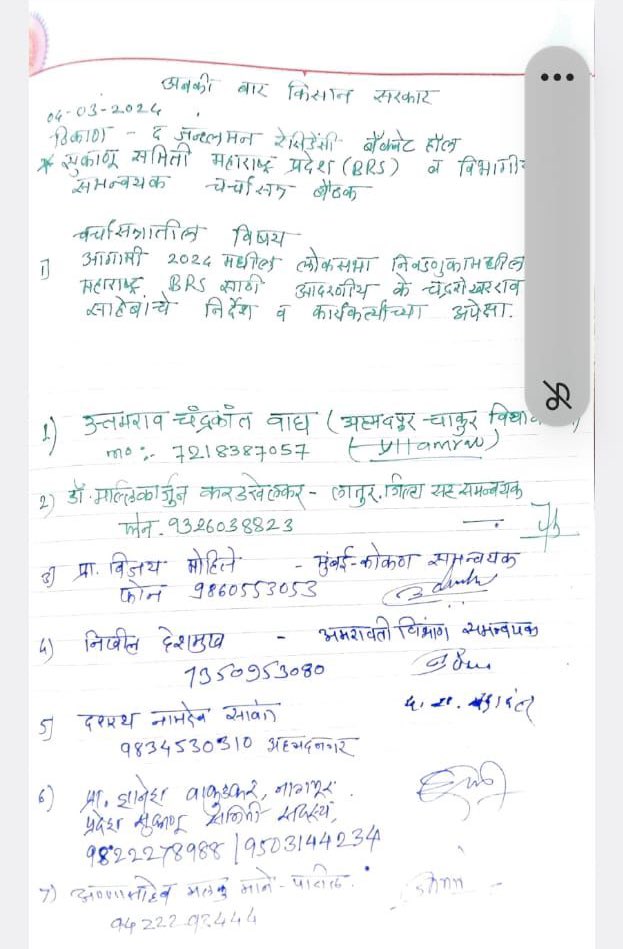 अबकी बार किसान सरकार
04-03-2024
ठिकाण - द जन्टलमन रेसिडेंसी बॅंक्वेट हॉल
* सुकाणू समिती महाराष्ट्र प्रदेश (BRS) व विभागीय
समन्वयक चर्चासत्र बैठक
चर्चासत्रातील विषय
1) आगामी 2024 मधील लोकसभा निवडणुकामधील
महाराष्ट्र BRS साठी आदरणीय के चंद्रशेखरराव
साहेबांचे निर्देश व कार्यकर्त्यांच्या अपेक्षा.
1) उत्तमराव चंद्रकांत वाघ (अहमदपूर-चाकुर विधान
mo:- 7218387057
2) डॉ. मल्लिकार्जुन करडखेलकर - लातुर, जिल्हा सह समन्वयक
फोन. 9326038823
3) प्रा. विजय मोहिते - मुंबई-कोकण समन्वयक
फोन 9860553053
4) निखील देशमुख - अमरावती विभाग समन्वयक
7350953080
5) दशरथ नामदेव सावंत
9834530310 अहमदनगर
6) प्रा. ज्ञानेश वाकुडकर, नागपूर.
प्रदेश सुकाणू समिती सदस्य,
9822278988 / 9503144234
7) अण्णासाहेब माने - पाटील.